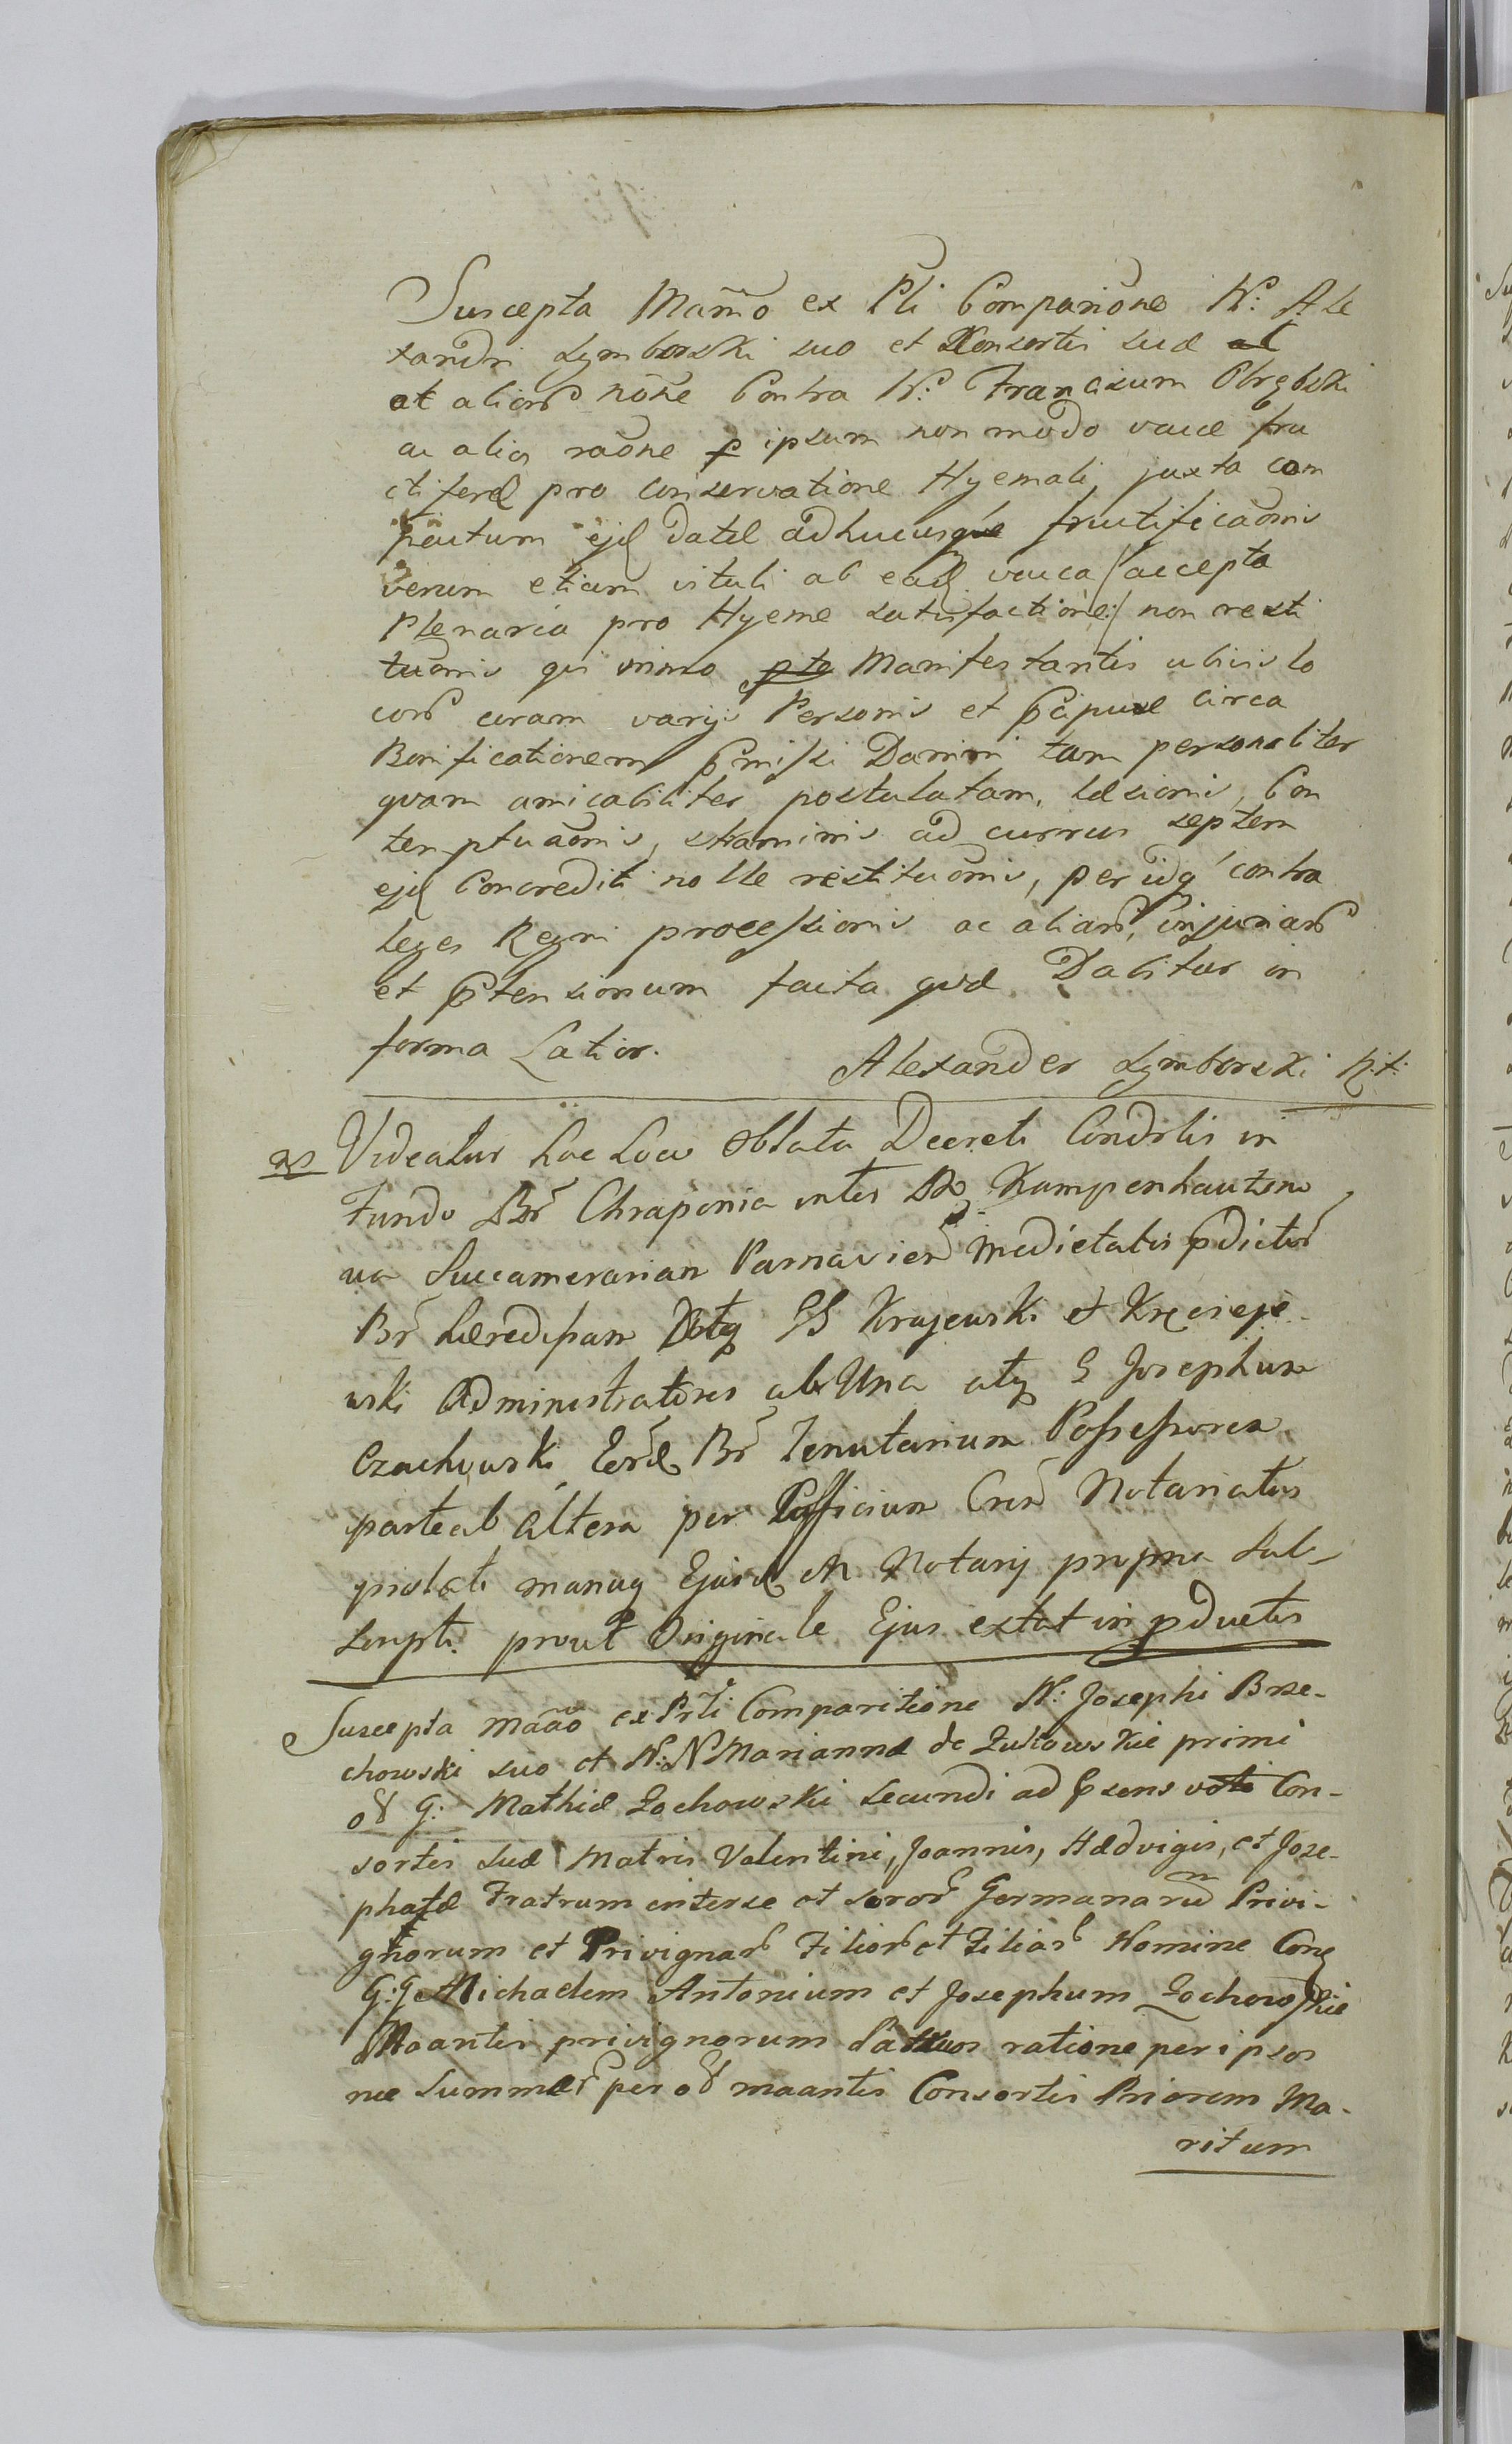 Suscepta Mãnõ ex Pli Compariõne N: Ale
xandri Lymborski suo et Consortis suæ
et alior nõne Contra N: Franciscum Obrębski
ac alia raõne p ipsum non modo vaccæ fru
ctiferæ pro conservatione Hyemali juxta com
pactum ejd datæ adhucusque fructificaõnis
verum etiam vituli ab ead vacca /accepta
Plenaria pro Hyeme satisfactiõne:/ non resti
tuõnis qui nimo Manifestantis ubivis lo
cor coram varijs Personis et pcipuæ circa
Bonificationem pmissi Damni tam personaliter
qvam amicabiliter postulatam, læsionis, Con
temptuaõnis, straminis ad currus septem
ejd Concrediti nolle restituõnis, per idq contra
leges Regni processionis ac aliar, injuriar
et ptensionum facta qvæ Dabitur in
forma Latior.
Alexander Lymborski
Videatur hoc Loco Oblata Decreti Condrlis in
Fundo Br Chraponia inter Kampenhausen
ua Succamerariam Parnavien Medietatis pdictor
Br hæredissam G G Krajewski et Kręciej
wski Administratores ab Una atq G Josephum
Czachowski Eord Br Tenutarium Possessorem
parte ab Altera per Officium Notariatus
manuq Ejusd M Notarij propria sub
scripti prout Originale Ejus extat in pductis
Suscepta mããõ ex Prti Comparitione N: Josephi Brze-
chowski suo et N: N Mariannæ de Żukowskie primi
G: Mathiæ Żochowski secundi ad psens voto Con-
sortis suæ Matris Valentini, Joannis, Hædvigis, et Joze-
phatæ Fratrum interse et soror Germanaru Privi-
gnorum et Privignar Filior et Filiar Nomine Cong
G: G Michaelem Antonium et Josephum Żochowskie
Maantis privignorum Patruos ratione per ipsos
næ summær per maantis Consortis Priorem Ma-
ritum